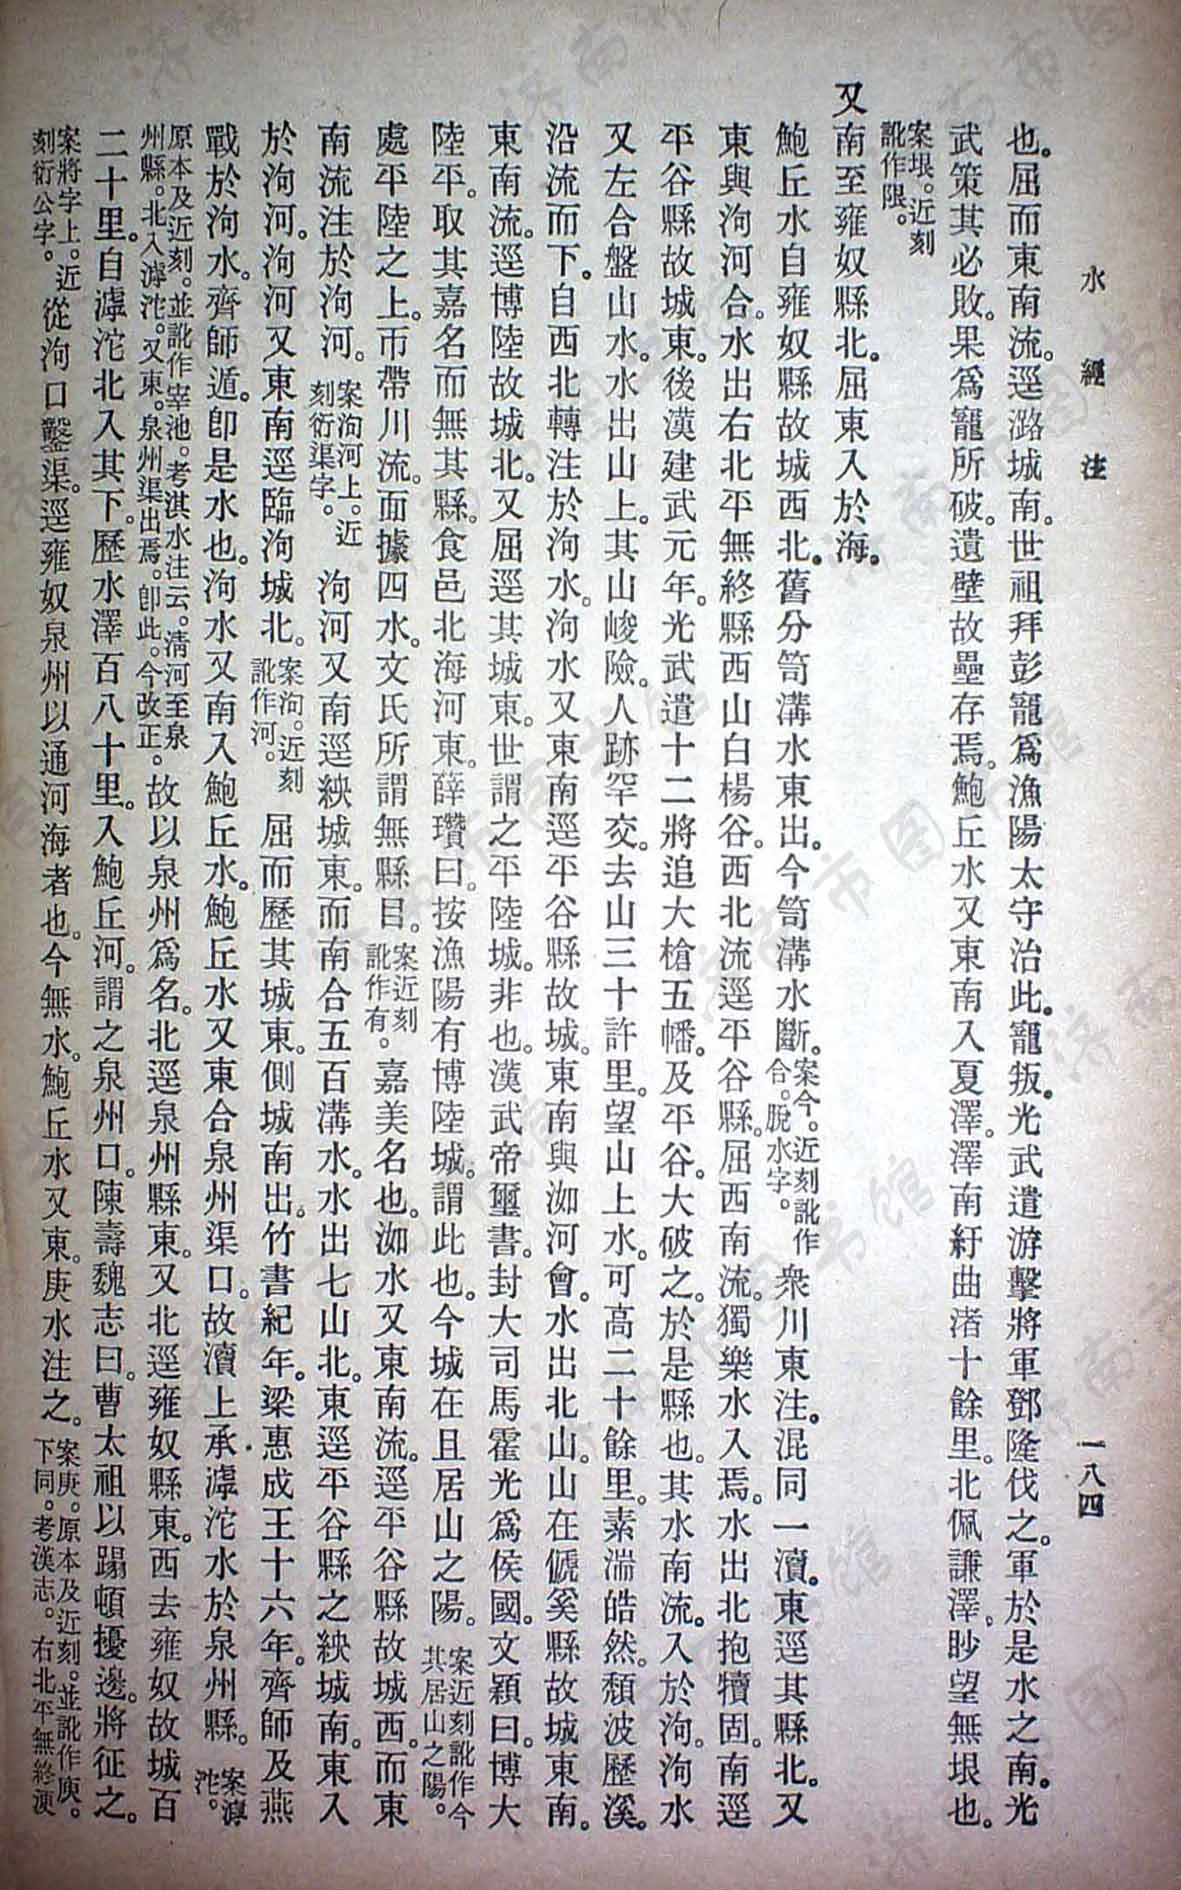 水經注
一八四
也。屈而東南流。逕潞城南。世祖拜彭寵爲漁陽太守治此。寵叛。光武遣游擊將軍鄧隆伐之。軍於是水之南。光
武策其必敗。果爲寵所破。遺壁故壘存焉。鮑丘水又東南入夏澤。澤南紆曲渚十餘里。北佩謙澤。眇望無垠也。
案垠。近刻
訛作限。
又南至雍奴縣北。屈東入於海。
鮑丘水自雍奴縣故城西北。舊分笥溝水東出。今笥溝水斷。案今。近刻訛作合。脫水字。衆川東注。混同一瀆。東逕其縣北。又
東與泃河合。水出右北平無終縣西山白楊谷。西北流逕平谷縣。屈西南流。獨樂水入焉。水出北抱犢固。南逕
平谷縣故城東。後漢建武元年。光武遣十二將追大槍五幡。及平谷。大破之。於是縣也。其水南流。入於泃。泃水
又左合盤山水。水出山上。其山峻險。人跡罕交。去山三十許里。望山上水。可高二十餘里。素湍皓然。頹波歷溪。
沿流而下。自西北轉注於泃水。泃水又東南逕平谷縣故城。東南與洳河會。水出北山。山在傂奚縣故城東南。
東南流。逕博陸故城北。又屈逕其城東。世謂之平陸城。非也。漢武帝璽書。封大司馬霍光爲侯國。文穎曰。博大
陸平。取其嘉名而無其縣。食邑北海河東。薛瓚曰。按漁陽有博陸城。謂此也。今城在且居山之陽。案近刻訛作今其居山之陽。
處平陸之上。帀帶川流。面據四水。文氏所謂無縣目。案近刻訛作有。嘉美名也。洳水又東南流。逕平谷縣故城西。而東
南流注於泃河。案泃河上。近刻衍渠字。泃河又南逕紻城東。而南合五百溝水。水出七山北。東逕平谷縣之紻城南。東入
於泃河。泃河又東南逕臨泃城北。案泃。近刻訛作河。屈而歷其城東。側城南出。竹書紀年。梁惠成王十六年。齊師及燕
戰於泃水。齊師遁。卽是水也。泃水又南入鮑丘水。鮑丘水又東合泉州渠口。故瀆上承滹沱水於泉州縣。案滹沱。
原本及近刻。並訛作宰池。考淇水注云。淸河至泉州縣。北入滹沱。又東。泉州渠出焉。卽此。今改正。故以泉州爲名。北逕泉州縣東。又北逕雍奴縣東。西去雍奴故城百
二十里。自滹沱北入其下。歷水澤百八十里。入鮑丘河。謂之泉州口。陳壽魏志曰。曹太祖以蹋頓擾邊。將征之。
案將字上。近刻衍公字。從泃口鑿渠。逕雍奴泉州以通河海者也。今無水。鮑丘水又東。庚水注之。案庚。原本及近刻。並訛作庾。下同。考漢志。右北平無終浭